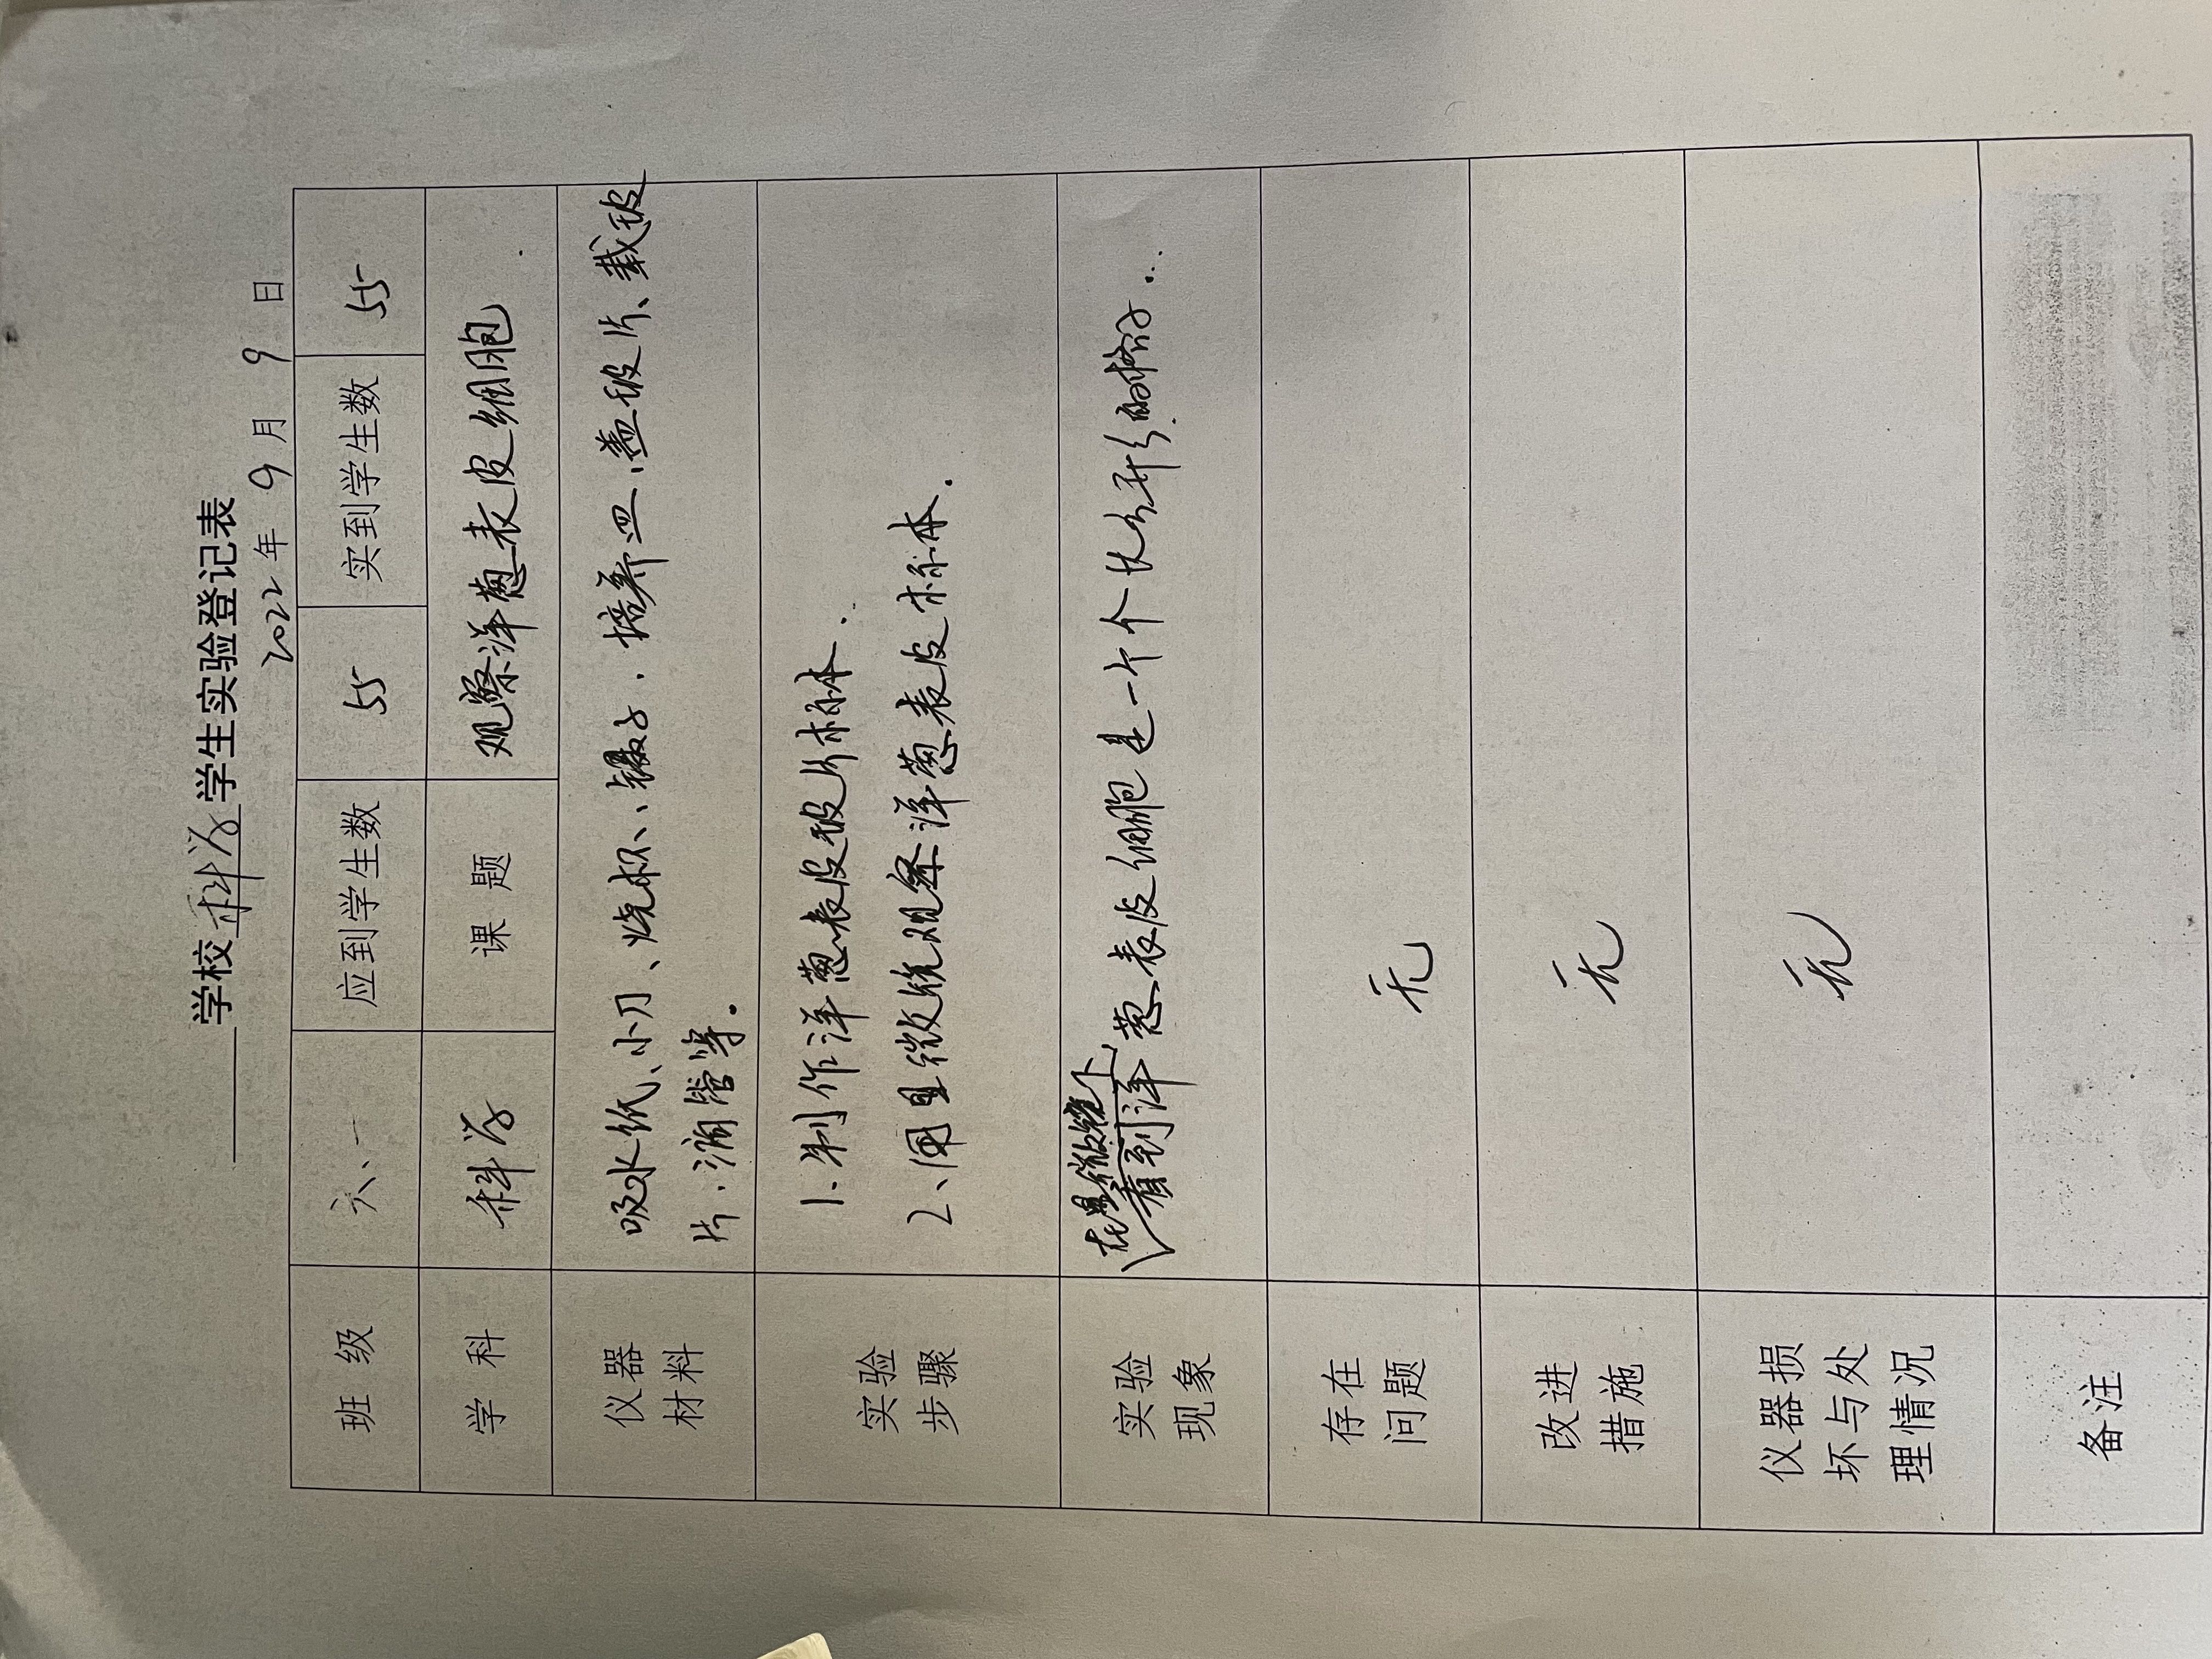 学校科学学生实验登记表
2022年9月9日
班级 六、一 应到学生数 55 实到学生数 55
学科 科学 课题 观察洋葱表皮细胞
仪器材料 吸水纸、小刀、烧杯、镊子、培养皿、盖玻片、载玻
片、滴管等。
实验步骤 1、制作洋葱表皮玻片标本.
2、用显微镜观察洋葱表皮标本.
实验现象 在显微镜下
看到洋葱表皮细胞是一个个长方形的格子...
存在问题 无
改进措施 无
仪器损坏与处理情况 无
备注